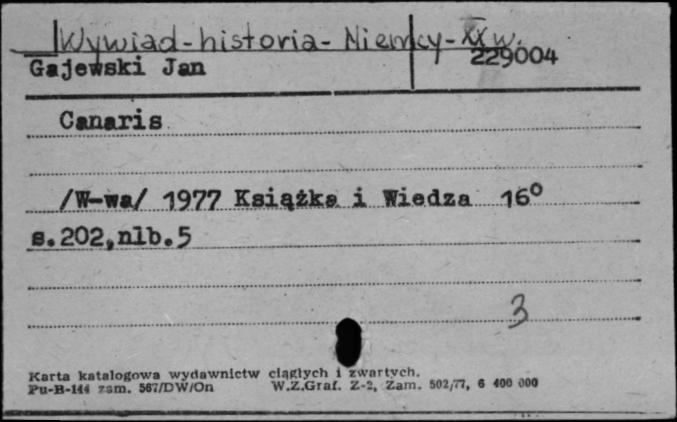 Wywiad-historia-Niemcy-XX w.
229004
Gajewski Jan
Canaris
/W-wa/ 1977 Książka i Wiedza 16⁰
s.202,nlb.5
3
Karta katalogowa wydawnictw ciągłych i zwartych.
Pu-B-144 zam. 567/DW/On W.Z.Graf. Z-2, Zam. 502/77, 6 400 000